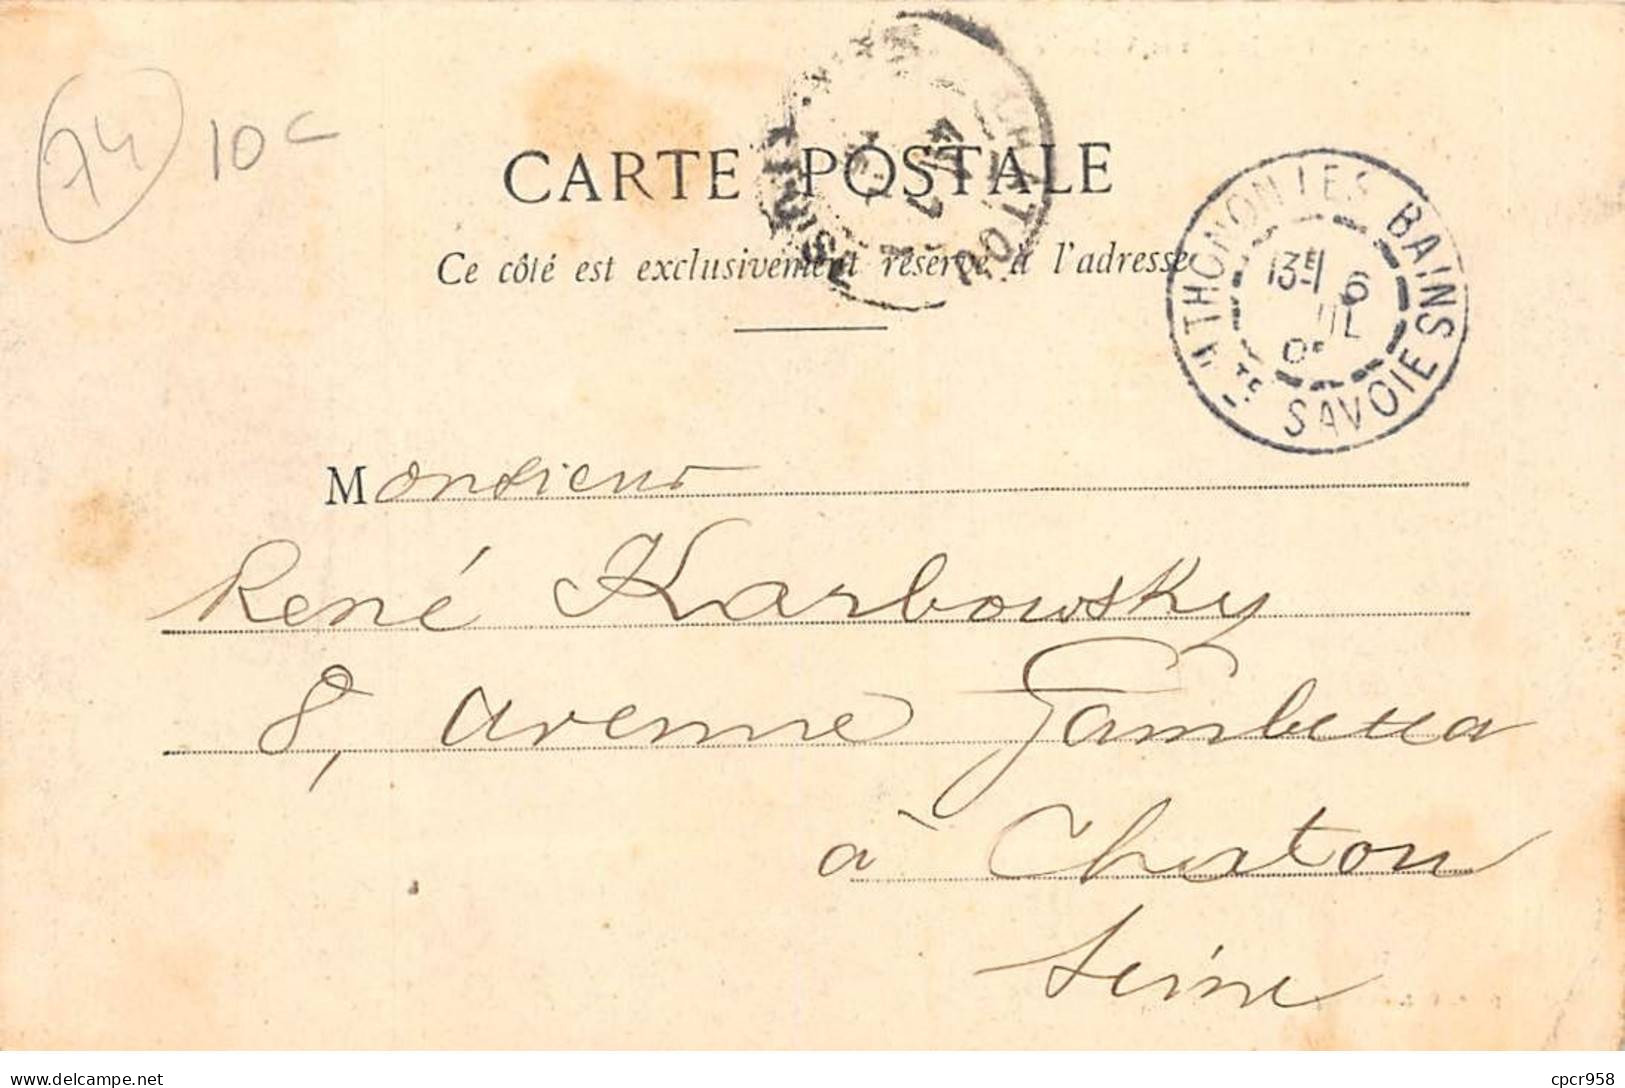 74 10c
CARTE POSTALE
Ce côté est exclusivement réservé à l'adresse
CHATOU
THONON LES BAINS
13E 6
Hte SAVOIE
Monsieur
René Karbowsky
8, avenue Gambetta
à Chatou
Seine
delcampe.net
cpcr958